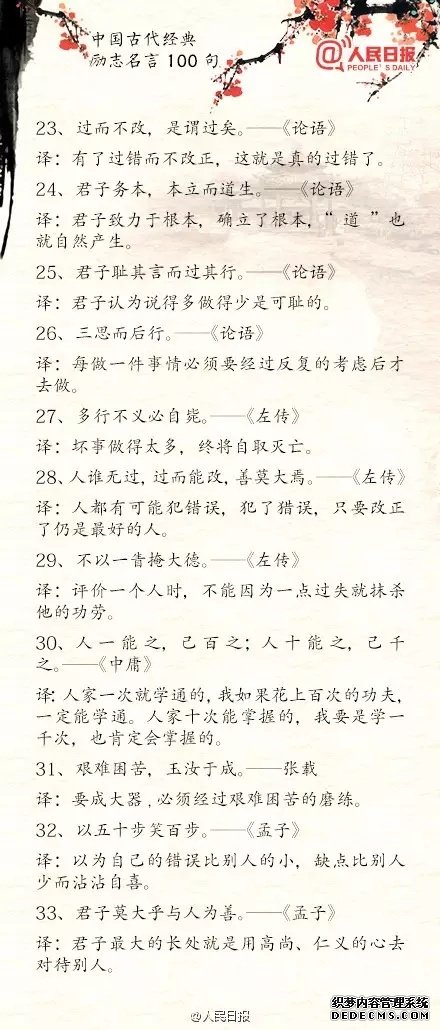 中国古代经典
励志名言 100 句
@人民日报
PEOPLE'S DAILY
23、过而不改，是谓过矣。——《论语》
译：有了过错而不改正，这就是真的过错了。
24、君子务本，本立而道生。——《论语》
译：君子致力于根本，确立了根本，“ 道 ”也
就自然产生。
25、君子耻其言而过其行。——《论语》
译：君子认为说得多做得少是可耻的。
26、三思而后行。——《论语》
译：每做一件事情必须要经过反复的考虑后才
去做。
27、多行不义必自毙。——《左传》
译：坏事做得太多，终将自取灭亡。
28、人谁无过，过而能改，善莫大焉。——《左传》
译：人都有可能犯错误，犯了猎误，只要改正
了仍是最好的人。
29、不以一眚掩大德。——《左传》
译：评价一个人时，不能因为一点过失就抹杀
他的功劳。
30、人一能之，己百之；人十能之，己千
之。——《中庸》
译：人家一次就学通的，我如果花上百次的功夫，
一定能学通。人家十次能掌握的，我要是学一
千次，也肯定会掌握的。
31、艰难困苦，玉汝于成。——张载
译：要成大器，必须经过艰难困苦的磨练。
32、以五十步笑百步。——《孟子》
译：以为自己的错误比别人的小，缺点比别人
少而沾沾自喜。
33、君子莫大乎与人为善。——《孟子》
译：君子最大的长处就是用高尚、仁义的心去
对待别人。
@人民日报
织梦内容管理系统
DEDECMS.COM